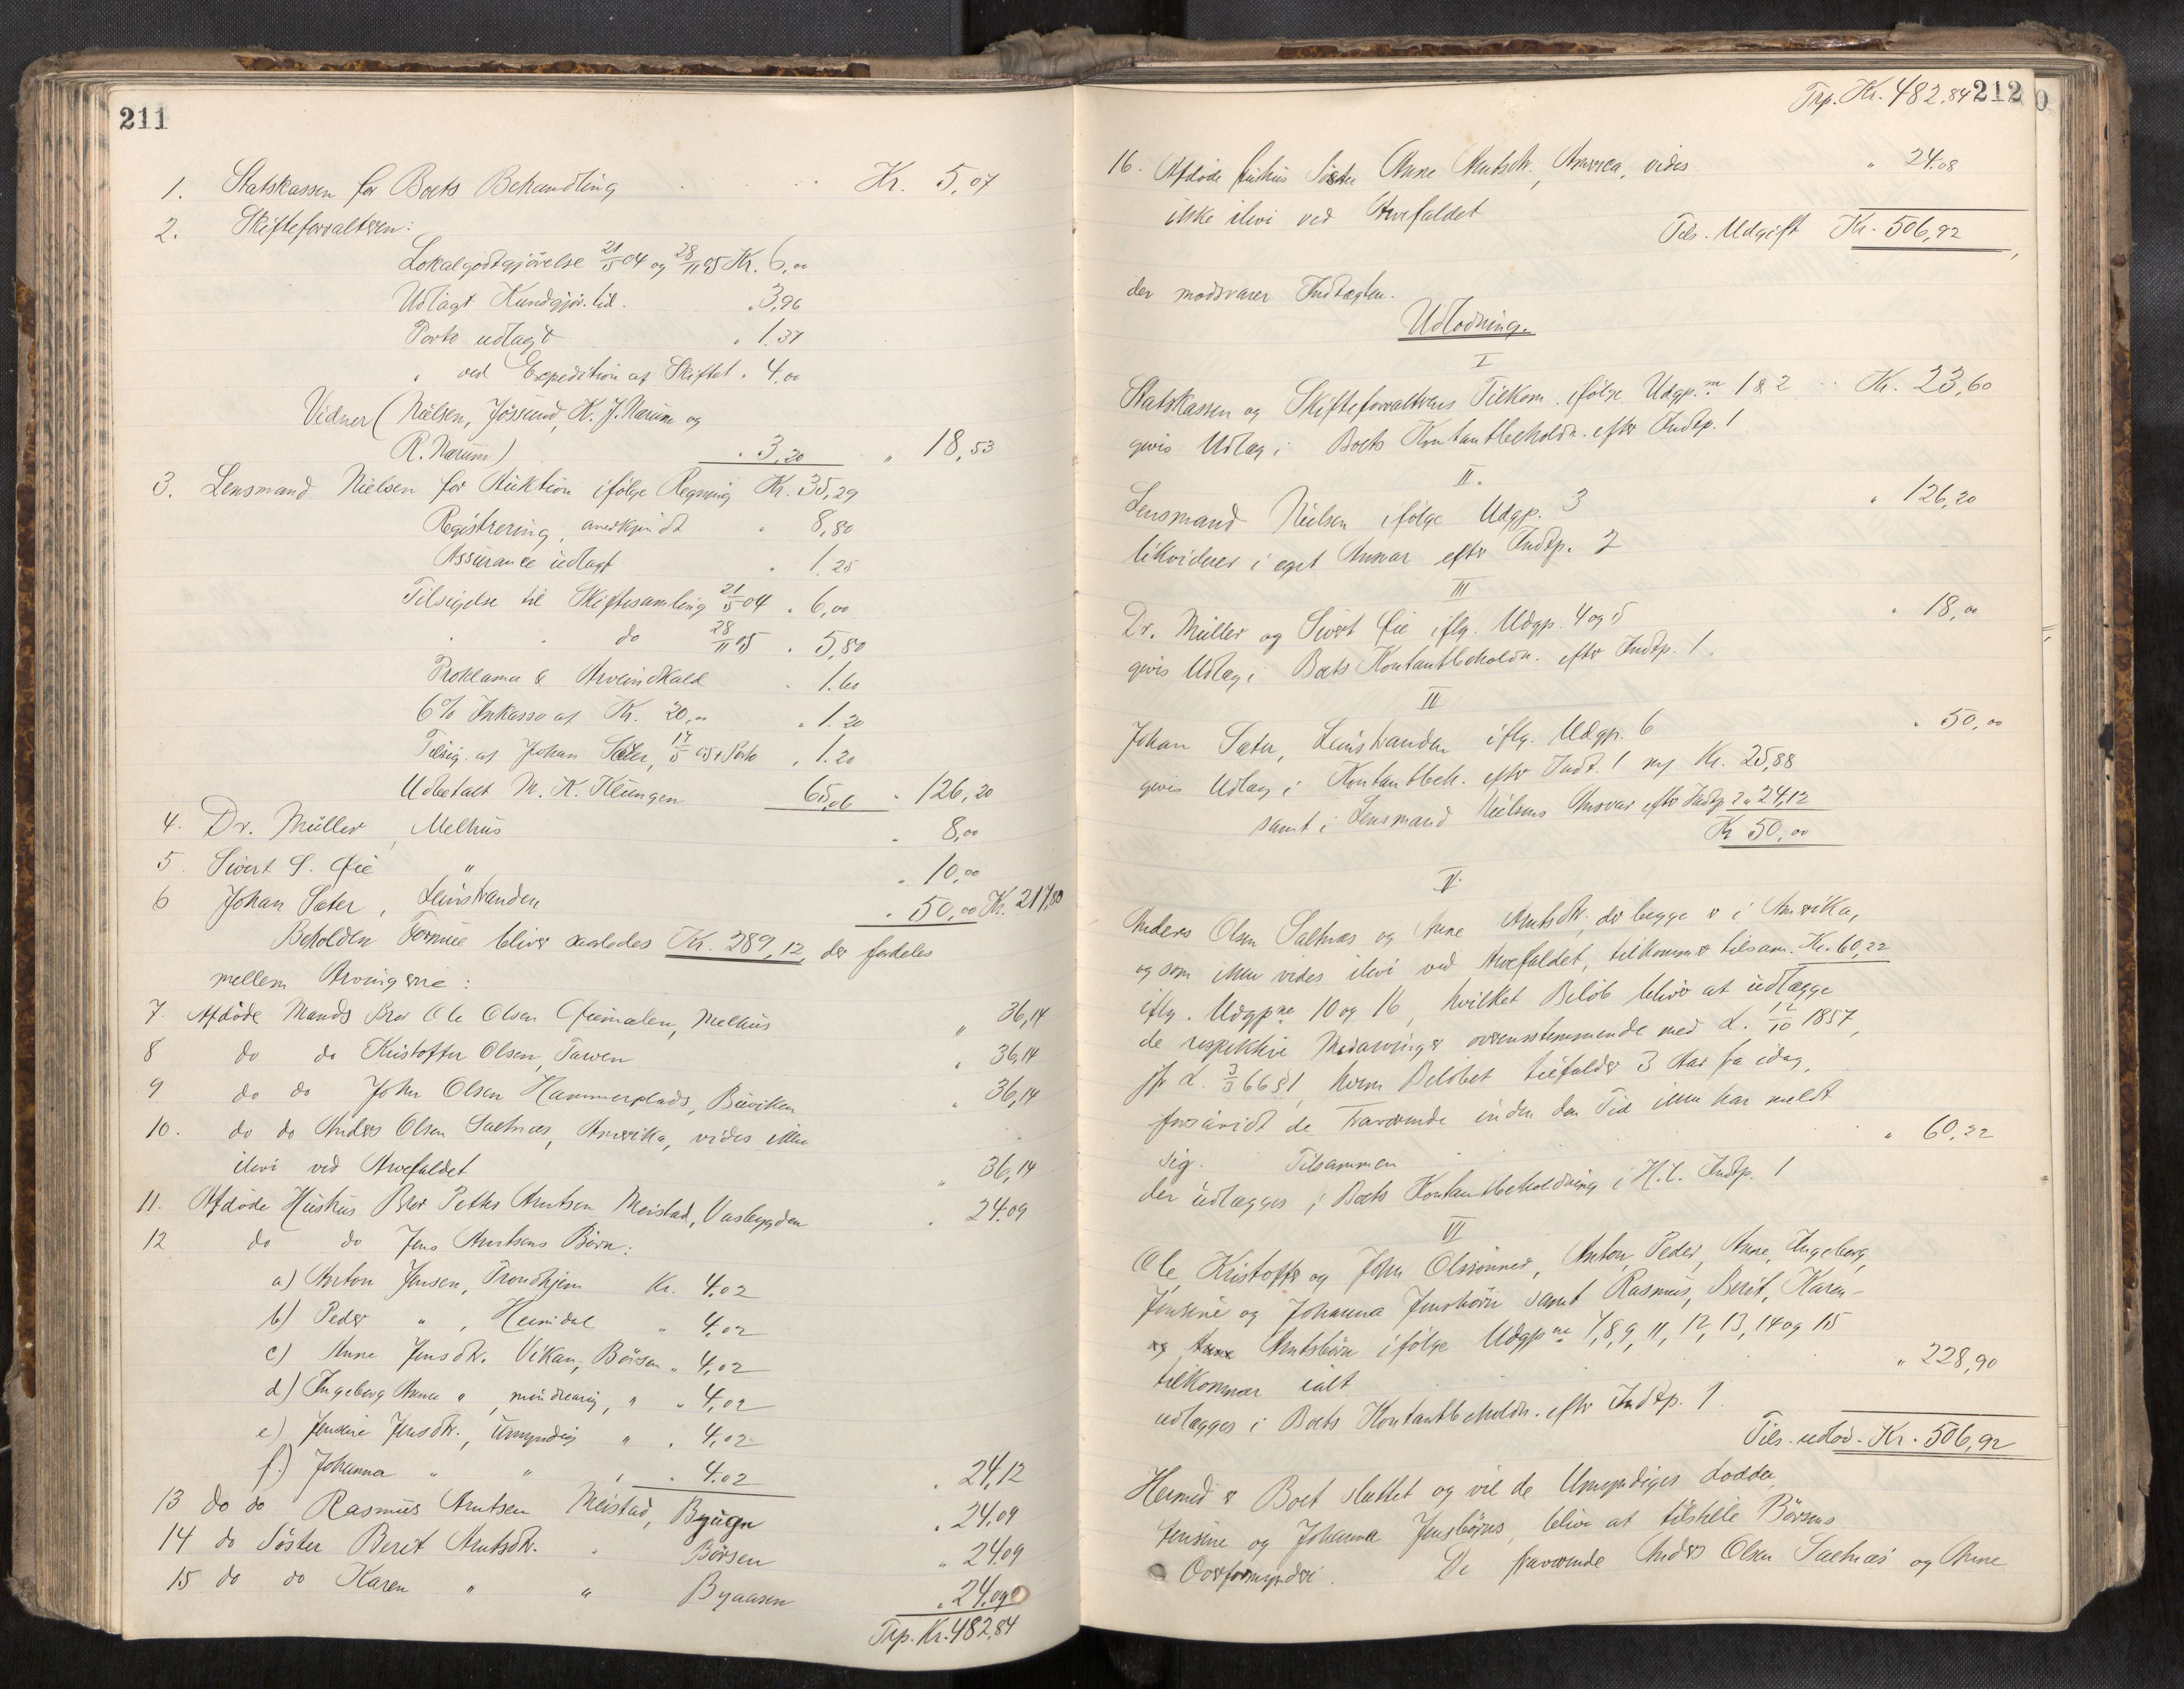 211
1. Statskassen for Boets Behandling Kr. 5,07
2. Skifteforvalteren:
Lokalgodtgjörelse 21/5 04 og 28/11 05 Kr. 6,00
Udlagt Kundgjör. tid. " 3,96
Porto udlagt " 1.37
" ved Expedition af Skiftet " 4,00
Vidner (Nielsen, Jössund, K. J. Nærum og
R. Nærum) " 3,20 " 18,53
3. Lensmand Nielsen for Auktion ifölge Regning Kr. 35,29
Registrering, " 8,80
Assurance udlagt " 1.25
Tilsigelse til Skiftesamling 21/5 04 " 6,00
" " do 28/11 05 " 5,80
Proklama & Arveindkald " 1.60
6% Inkasso af Kr. 20,00 " 1.20
Tilsig. af Johan Sæter, 17/5 05 + Porto " 1.20
Udbetalt M. K. Klungen 65,06 " 126,20
4. Dr. Müller, Melhus " 8,00
5. Sivert S. Øie " " 10,00
6 Johan Sæter, Leinstranden " 50,00 Kr. 217,80
Beholden Formue bliver saaledes Kr. 289,12, der fordeles
mellem Arvingerne:
7. Afdöde Mands Bror Ole Olsen Øiemalen, Melhus " 36,14
8 do do Kristoffer Olsen, " 36,14
9 do do John Olsen Hammerplads, Buviken " 36,14
10. do do Anders Olsen Saltnæs, Amerika, vides ikke
ilive ved Arvefaldet " 36,14
11. Afdöde Hustrus Bror Petter Arntsen Meistad, Vasbygden " 24.09
12 do do Jens Arntsens Börn:
a) Anton Jensen, Trondhjem Kr. 4.02
b) Peder " , Heimdal " 4.02
c) Anne Jensdtr. Vikan, Börsen " 4,02
d) Ingeborg Anna " , mindreårig, " " 4,02
e) Jensine Jensdtr., Umyndig " " 4,02
f.) Johanna " " " " 4.02 " 24,12
13 do do Rasmus Arntsen Meistad, Bynges " 24.09
14 do Söster Berit Arntsdtr. " Börsen " 24.09
15 do do Karen " " Byaasen " 24.09
Trp. Kr. 482,84
Trp. Kr. 482,84 212
16. Afdöde Hustrus Söster Anne Arntsdtr., America, vides
ikke ilive ved Arvefaldet " 24.08
Tils. Udgift Kr. 506,92,
der modsvarer Indtægten.
Udlodning.
I
Statskassen og Skifteforvalterens Tilkom. ifölge Udgp.ne 1 & 2 Kr. 23,60
gives Udlæg i Boets Kontantbeholdn. efter Indtp. 1
II.
Lensmand Nielsen ifölge Udgp. 3 " 126,20
likvideres i eget Ansvar efter Indtp. 2
III
Dr. Müller og Sivert Øie iflg. Udgp. 4 og 5 " 18,00
gives Udlæg i Boets Kontantbeholdn. efter Indtp. 1.
IV
Johan Sæter, Leinstranden iflg. Udgp. 6 " 50,00
gives Udlæg i Kontantbeh. efter Indt. 1 Kr. 25,88
samt i Lensmand Nielsens Ansvar efter Indtp. 2 " 24,12
Kr 50,00
V.
Anders Olsen Saltnæs og Anne Arntsdtr. der begge er i Amerika,
og som ikke vides ilive ved Arvefaldet, tilkommer tilsam. Kr. 60,22
iflg. Udgp.ne 10 og 16, hvilket Belöb bliver at udlægge
de respektive Medarvinger overensstemmende med L. 12/10 1857,
jfr L. 3/3 66 § 1, hvem Belöbet tilfalder 3 Aar fra idag,
forsåvidt de Fraværende inden den Tid ikke har meldt
sig. Tilsammen " 60,22
der udlægges i Boets Kontantbeholdning i H.t. Indtp. 1
VI
Ole, Kristoffer og John Olssönner, Anton, Peder, Anne, Ingeborg,
Jensine og Johanna Jensbörn samt Rasmus, Berit, Karen
og Anne Arntsbörn ifölge Udgp.ne 7, 8, 9, 11, 12, 13, 14 og 15
tilkommer ialt " 228,90
udlægges i Boets Kontantbeholdn. efter Indtp. 1.
Tils. udlod. Kr. 506,92
Hermed er Boet sluttet og vil de Umyndiges Lodder,
Jensine og Johanna Jensbörns, blive at tilstille Börsens
Overformynderi. De fraværende Anders Olsen Saltnæs og Anne